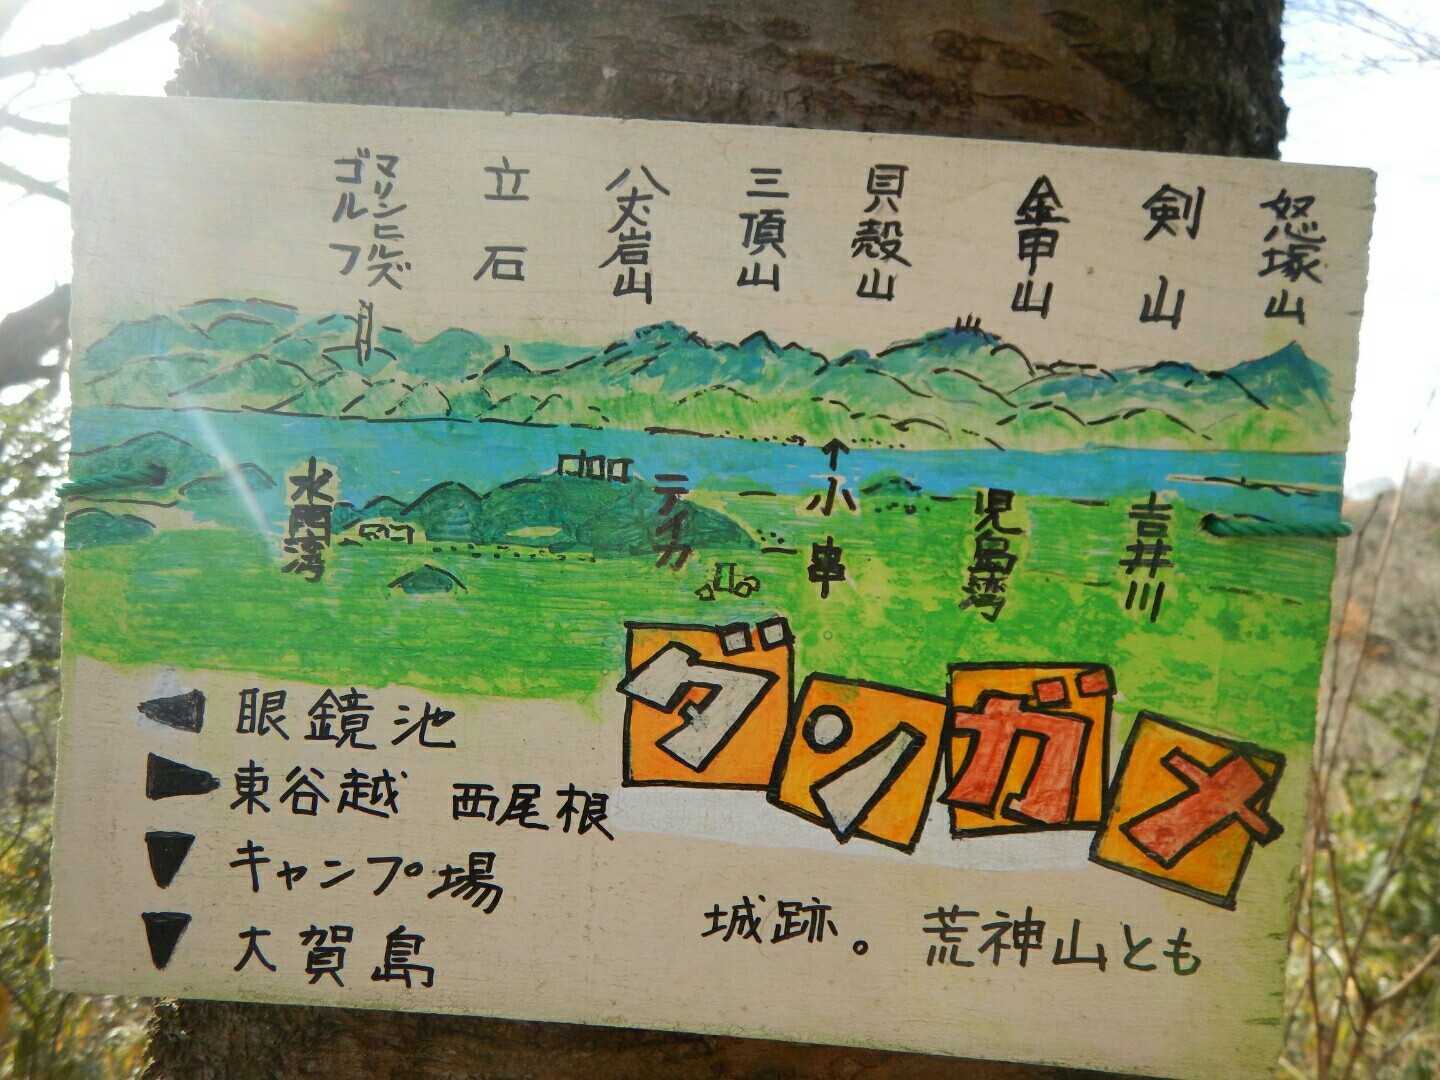 マリンヒルズ
ゴルフ
立石
八丈岩山
三頂山
貝殻山
金甲山
剣山
怒塚山
水門湾
テイカ
↑小串
児島湾
吉井川
ダンガメ
◀眼鏡池
▶東谷越 西尾根
▼キャンプ場
▼大賀島
城跡。荒神山とも